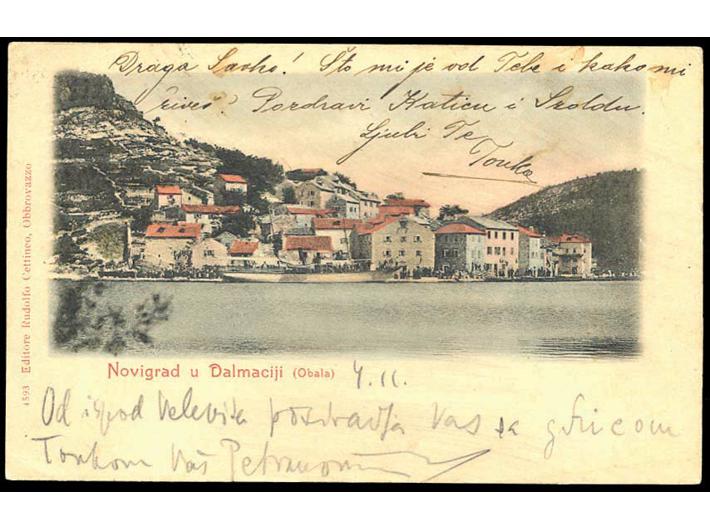 Draga Savko! Što mi je od Tebe i kako mi
živeš? Pozdravi Katicu i Szoldu.
Ljubi Te
Tonka
Novigrad u Dalmaciji (Obala) 4.11.
Od ispod Velebita pozdravlja Vas sa
Tonkom Vaš
4593 Editore Rudolfo Cettineo, Obbrovazzo